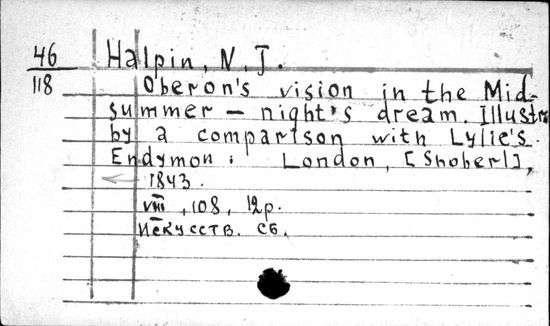 46
118
Halpin, N. J.
Oberon's vision in the Mid-
summer - night's dream. Illustr.
by a comparison with Lylie's
Endymon. London, [Shoberl],
1843.
VIII, 108, 12p.
Искусств. сб.